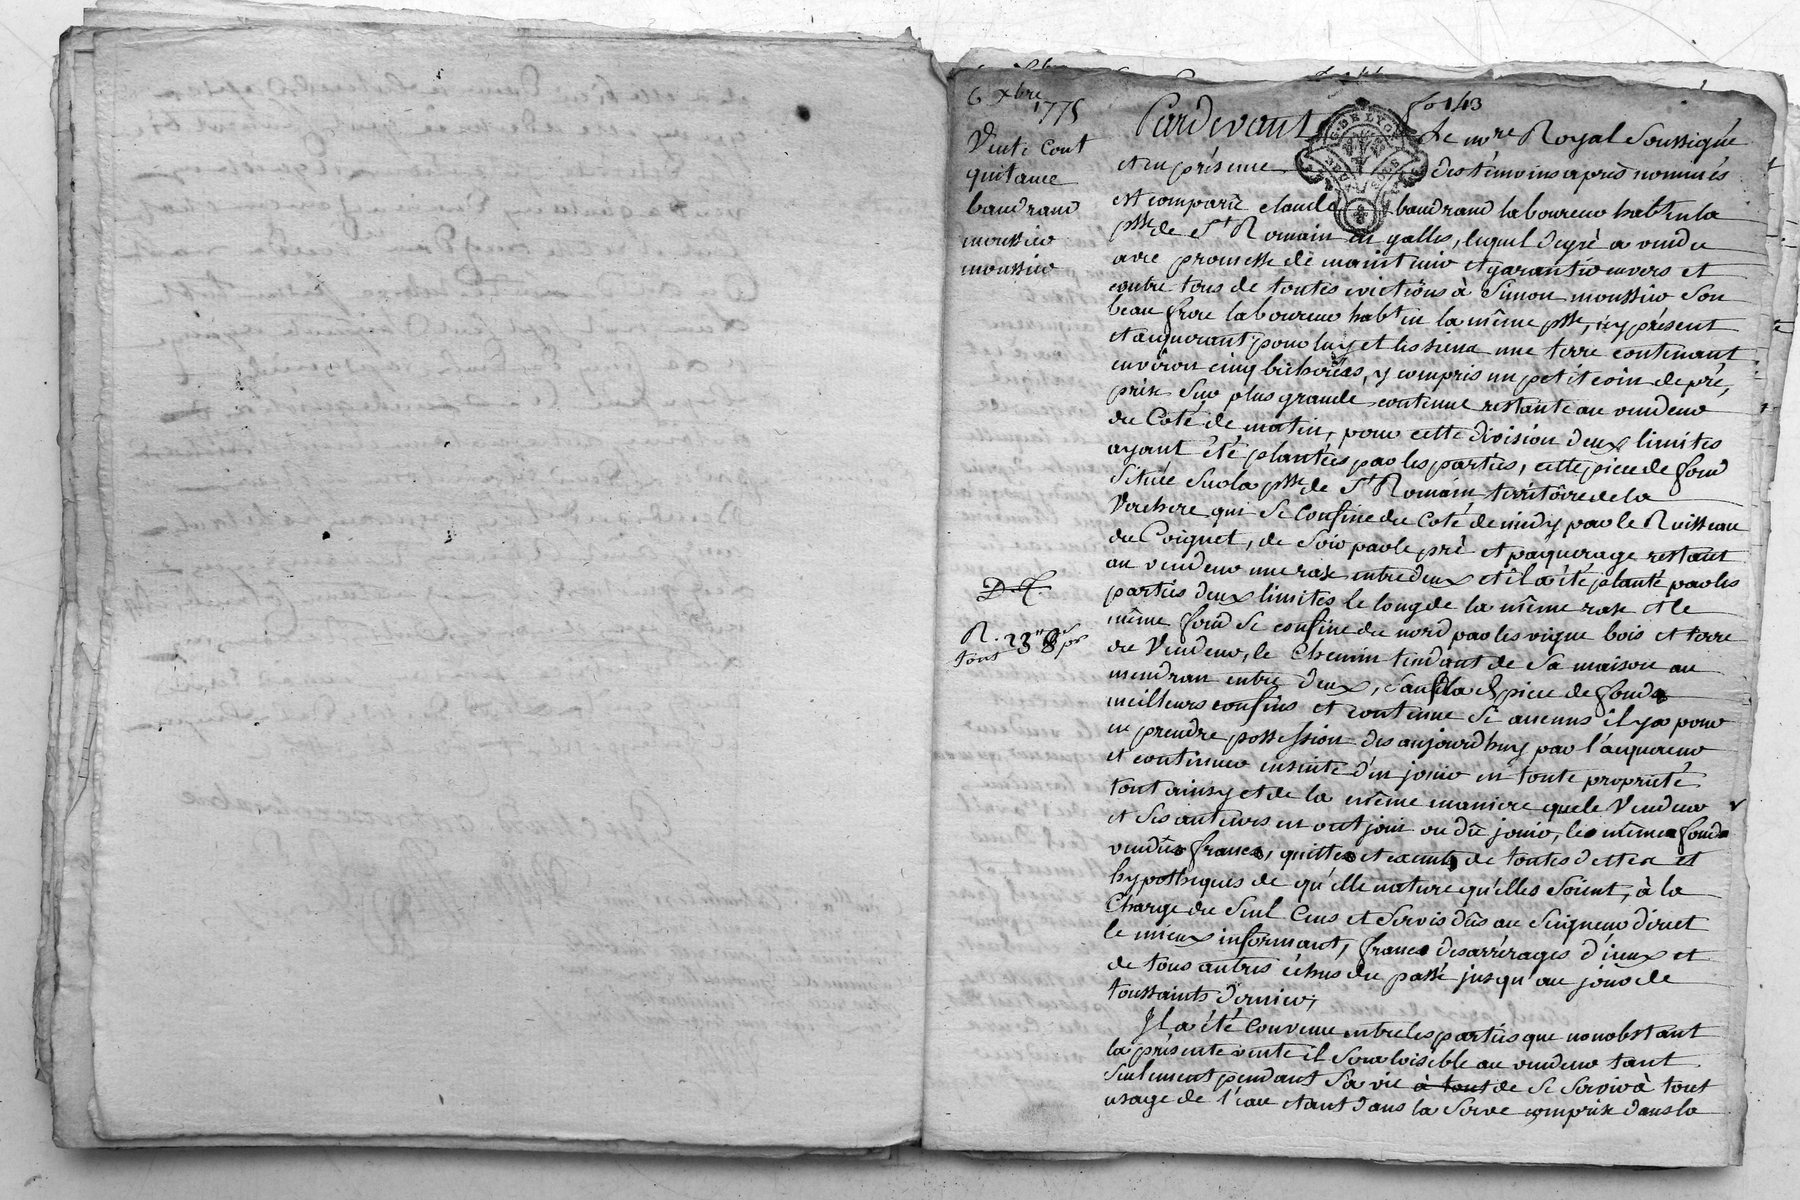 6 xbre 1775
Vente cont
quitance
baudrand
moussier
moussier
D. C.
R. 23
tout
fo 143
G DE LYON
Pardevant Le nre Royal Soussigné
et en présence des témoins après nommés
est comparû claude baudrand laboureur habt en la
psse de St Romain en gallis, lequel degré a vendu
avec promesse de maintenir et garantir envers et
contre tous de toutes evictions à Simon moussier Son
beau frere laboureur habt en la même psse, icy présent
et acquerant pour luy et les siens une terre contenant
environ cinq bicherées, y compris un petit coin de pré,
prise Sur plus grande contenue restante au vendeur
du Coté de matin, pour cette division deux limites
ayant été plantées par les parties, cette piece de fond
Située Sur la psse de St Romain territoire de la
Verchere qui Se Confine du Coté de midy par le Ruisseau
du Coignet, de Soir par le pré et paquerage restant
au vendeur une rase entre deux et il a été planté par les
parties deux limites le long de la même rase et le
même fond Se confine du nord par les vigne bois et terre
du Vendeur, le Chemin tendant de Sa maison au
mendran entre deux, Sauf la piece de fond
meilleurs confins et contenue Si aucuns il y a pour
en prendre possession des aujourdhuy par l'acquereur
et continuer ensuite d'en jouir en toute propriété
tout ainsy et de la même maniere que le Vendeur
et Ses auteurs en ont joui ou dû jouir, le même fond
vendu franc, quitte et exempt de toutes dettes et
hypotheques de qu'elle nature qu'elles Soient, à la
Charge du Seul Cens et Servis dûs au Seigneur direct
le mieux informant, franc des arrérages d'iceux et
de tous autres échus du passé jusqu'au jour de
toussaints dernier,
Il a été Convenu entre les parties que nonobstant
la présente vente il Sera loisible au vendeur tant
Seulement pendant Sa vie à tout de Se Servir à tout
usage de l'eau etant dans la Serve comprise dans la